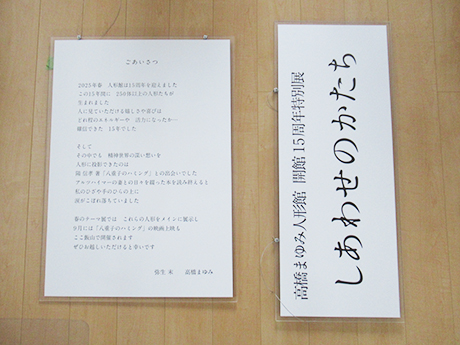 ごあいさつ
2025年春 人形館は15周年を迎えました
この15年間に 250体以上の人形たちが
生まれました
人に見ていただける嬉しさや喜びは
どれ程のエネルギーや 活力になったか…
確信できた 15年でした
そして
その中でも
人形に投影できたのは
陽信孝 著「八重子のハミング」との出会いでした
アルツハイマーの妻との日々を綴った本を読み終えると
私のひざや手のひらの上に
涙がこぼれ落ちていました
春のテーマ展では これらの人形をメインに展示し
9月には「八重子のハミング」の映画上映も
ここ飯山で開催されます
ぜひお越しいただけると幸いです
弥生 末 高橋まゆみ
高橋まゆみ人形館 開館15周年特別展
しあわせのかたち